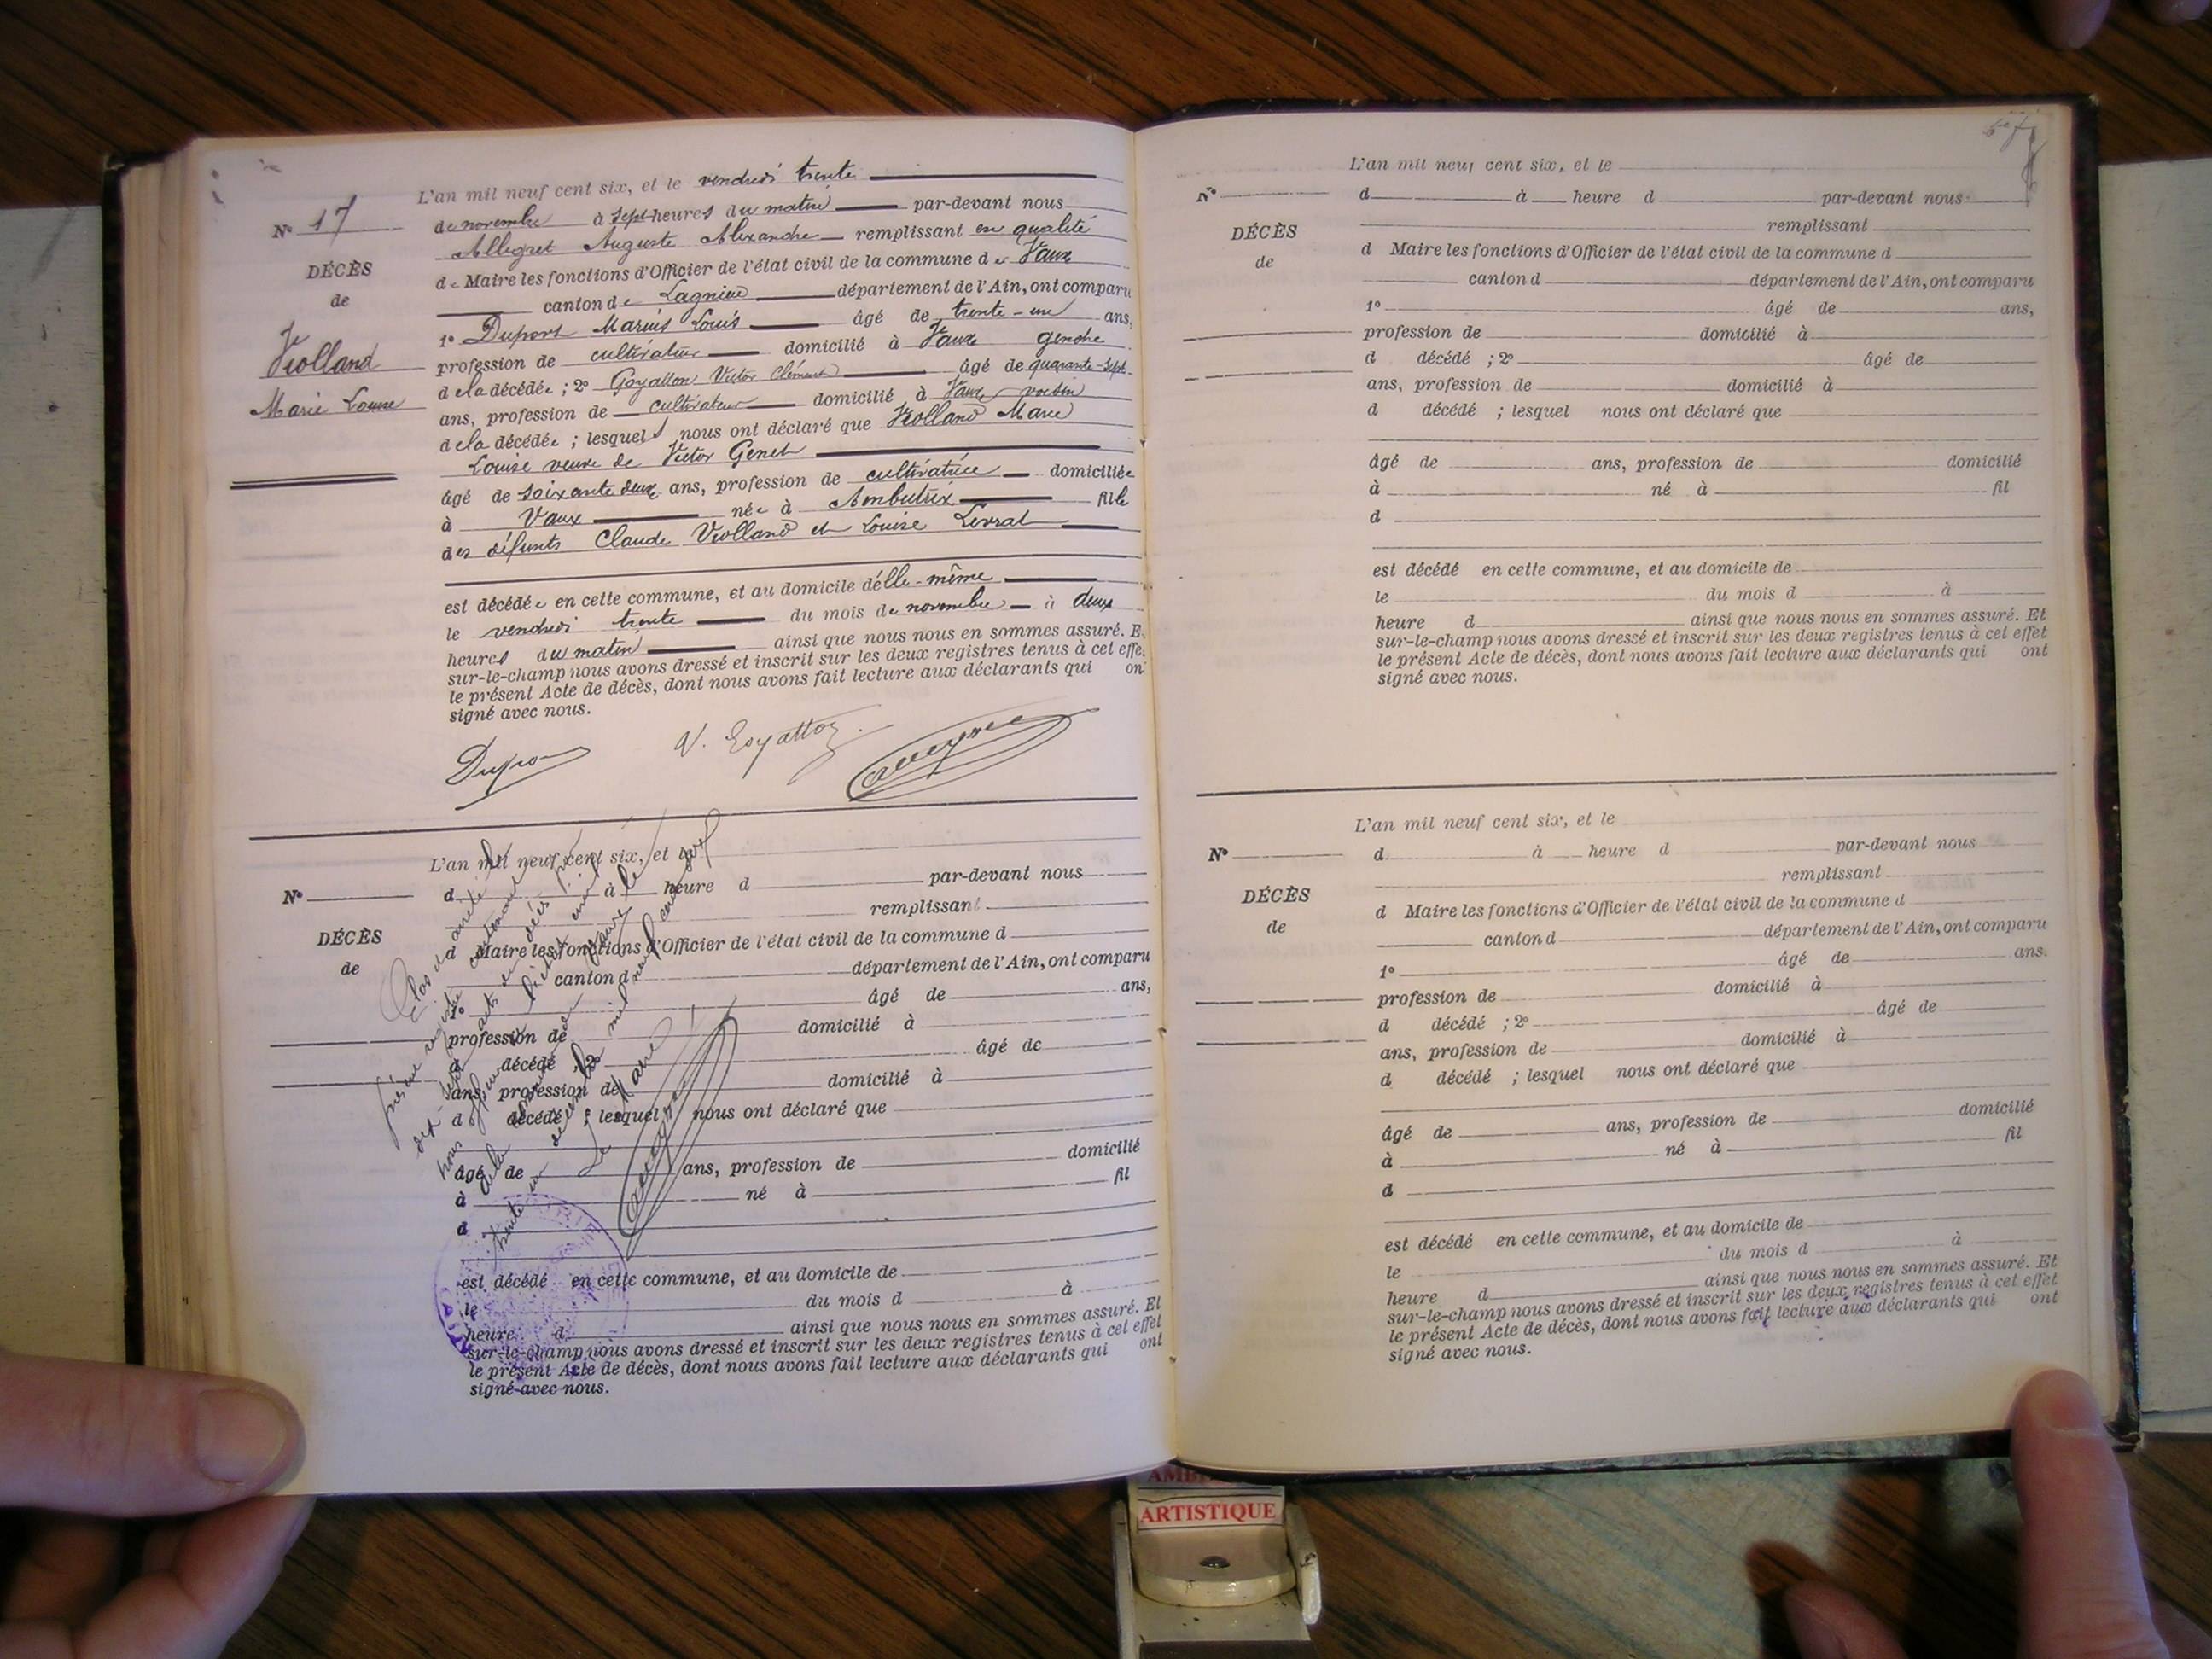 L'an mil neuf cent six, et le vendredi trente
N° 17
de novembre à sept heures du matin par-devant nous
Allegret Auguste Alexandre remplissant en qualité
DÉCÈS
de Maire les fonctions d'Officier de l'état civil de la commune de Vaux
de
canton de Lagnieu département de l'Ain, ont comparu
1° Dupont Marius Louis âgé de trente-un ans,
Violland
profession de cultivateur domicilié à Vaux gendre
Marie Louise
de la décédée ; 2° Goyatton Victor Clément âgé de quarante-sept
ans, profession de cultivateur domicilié à Vaux voisin
de la décédée ; lesquels nous ont déclaré que Violland Marie
Louise veuve de Victor Genet
âgé de soixante deux ans, profession de cultivatrice domiciliée
à Vaux née à Ambutrix fille
des défunts Claude Violland et Louise Levrat
est décédée en cette commune, et au domicile d'elle-même
le vendredi trente du mois de novembre à deux
heures du matin ainsi que nous nous en sommes assuré. E
sur-le-champ nous avons dressé et inscrit sur les deux registres tenus à cet effe
le présent Acte de décès, dont nous avons fait lecture aux déclarants qui on
signé avec nous.
V. Goyatton
L'an mil neuf cent six, et le
N°
d à heure d par-devant nous
remplissant
DÉCÈS
d Maire les fonctions d'Officier de l'état civil de la commune d
de
canton d département de l'Ain, ont comparu
1° âgé de ans,
profession de domicilié à
d décédé ; 2° âgé de
ans, profession de domicilié à
d décédé ; lesquel nous ont déclaré que
âgé de ans, profession de domicilié
à né à fil
d
est décédé en cette commune, et au domicile de
le du mois d à
heure d ainsi que nous nous en sommes assuré. Et
sur-le-champ nous avons dressé et inscrit sur les deux registres tenus à cet effet
le présent Acte de décès, dont nous avons fait lecture aux déclarants qui ont
signé avec nous.
Clos et arrêté le
présent registre contenant
dix-sept actes de décès par
nous
trente un décembre mil neuf cent six
Le Maire
L'an mil neuf cent six, et le
N°
d à heure d par-devant nous
remplissant
DÉCÈS
d Maire les fonctions d'Officier de l'état civil de la commune d
de
canton d département de l'Ain, ont comparu
1° âgé de ans,
profession de domicilié à
d décédé ; 2° âgé de
ans, profession de domicilié à
d décédé ; lesquel nous ont déclaré que
âgé de ans, profession de domicilié
à né à fil
d
est décédé en cette commune, et au domicile de
le du mois d à
heure d ainsi que nous nous en sommes assuré. Et
sur-le-champ nous avons dressé et inscrit sur les deux registres tenus à cet effet
le présent Acte de décès, dont nous avons fait lecture aux déclarants qui ont
signé avec nous.
L'an mil neuf cent six, et le
N°
d à heure d par-devant nous
remplissant
DÉCÈS
d Maire les fonctions d'Officier de l'état civil de la commune d
de
canton d département de l'Ain, ont comparu
1° âgé de ans.
profession de domicilié à
d décédé ; 2° âgé de
ans, profession de domicilié à
d décédé ; lesquel nous ont déclaré que
âgé de ans, profession de domicilié
à né à fil
d
est décédé en cette commune, et au domicile de
le du mois d à
heure d ainsi que nous nous en sommes assuré. Et
sur-le-champ nous avons dressé et inscrit sur les deux registres tenus à cet effet
le présent Acte de décès, dont nous avons fait lecture aux déclarants qui ont
signé avec nous.
ARTISTIQUE